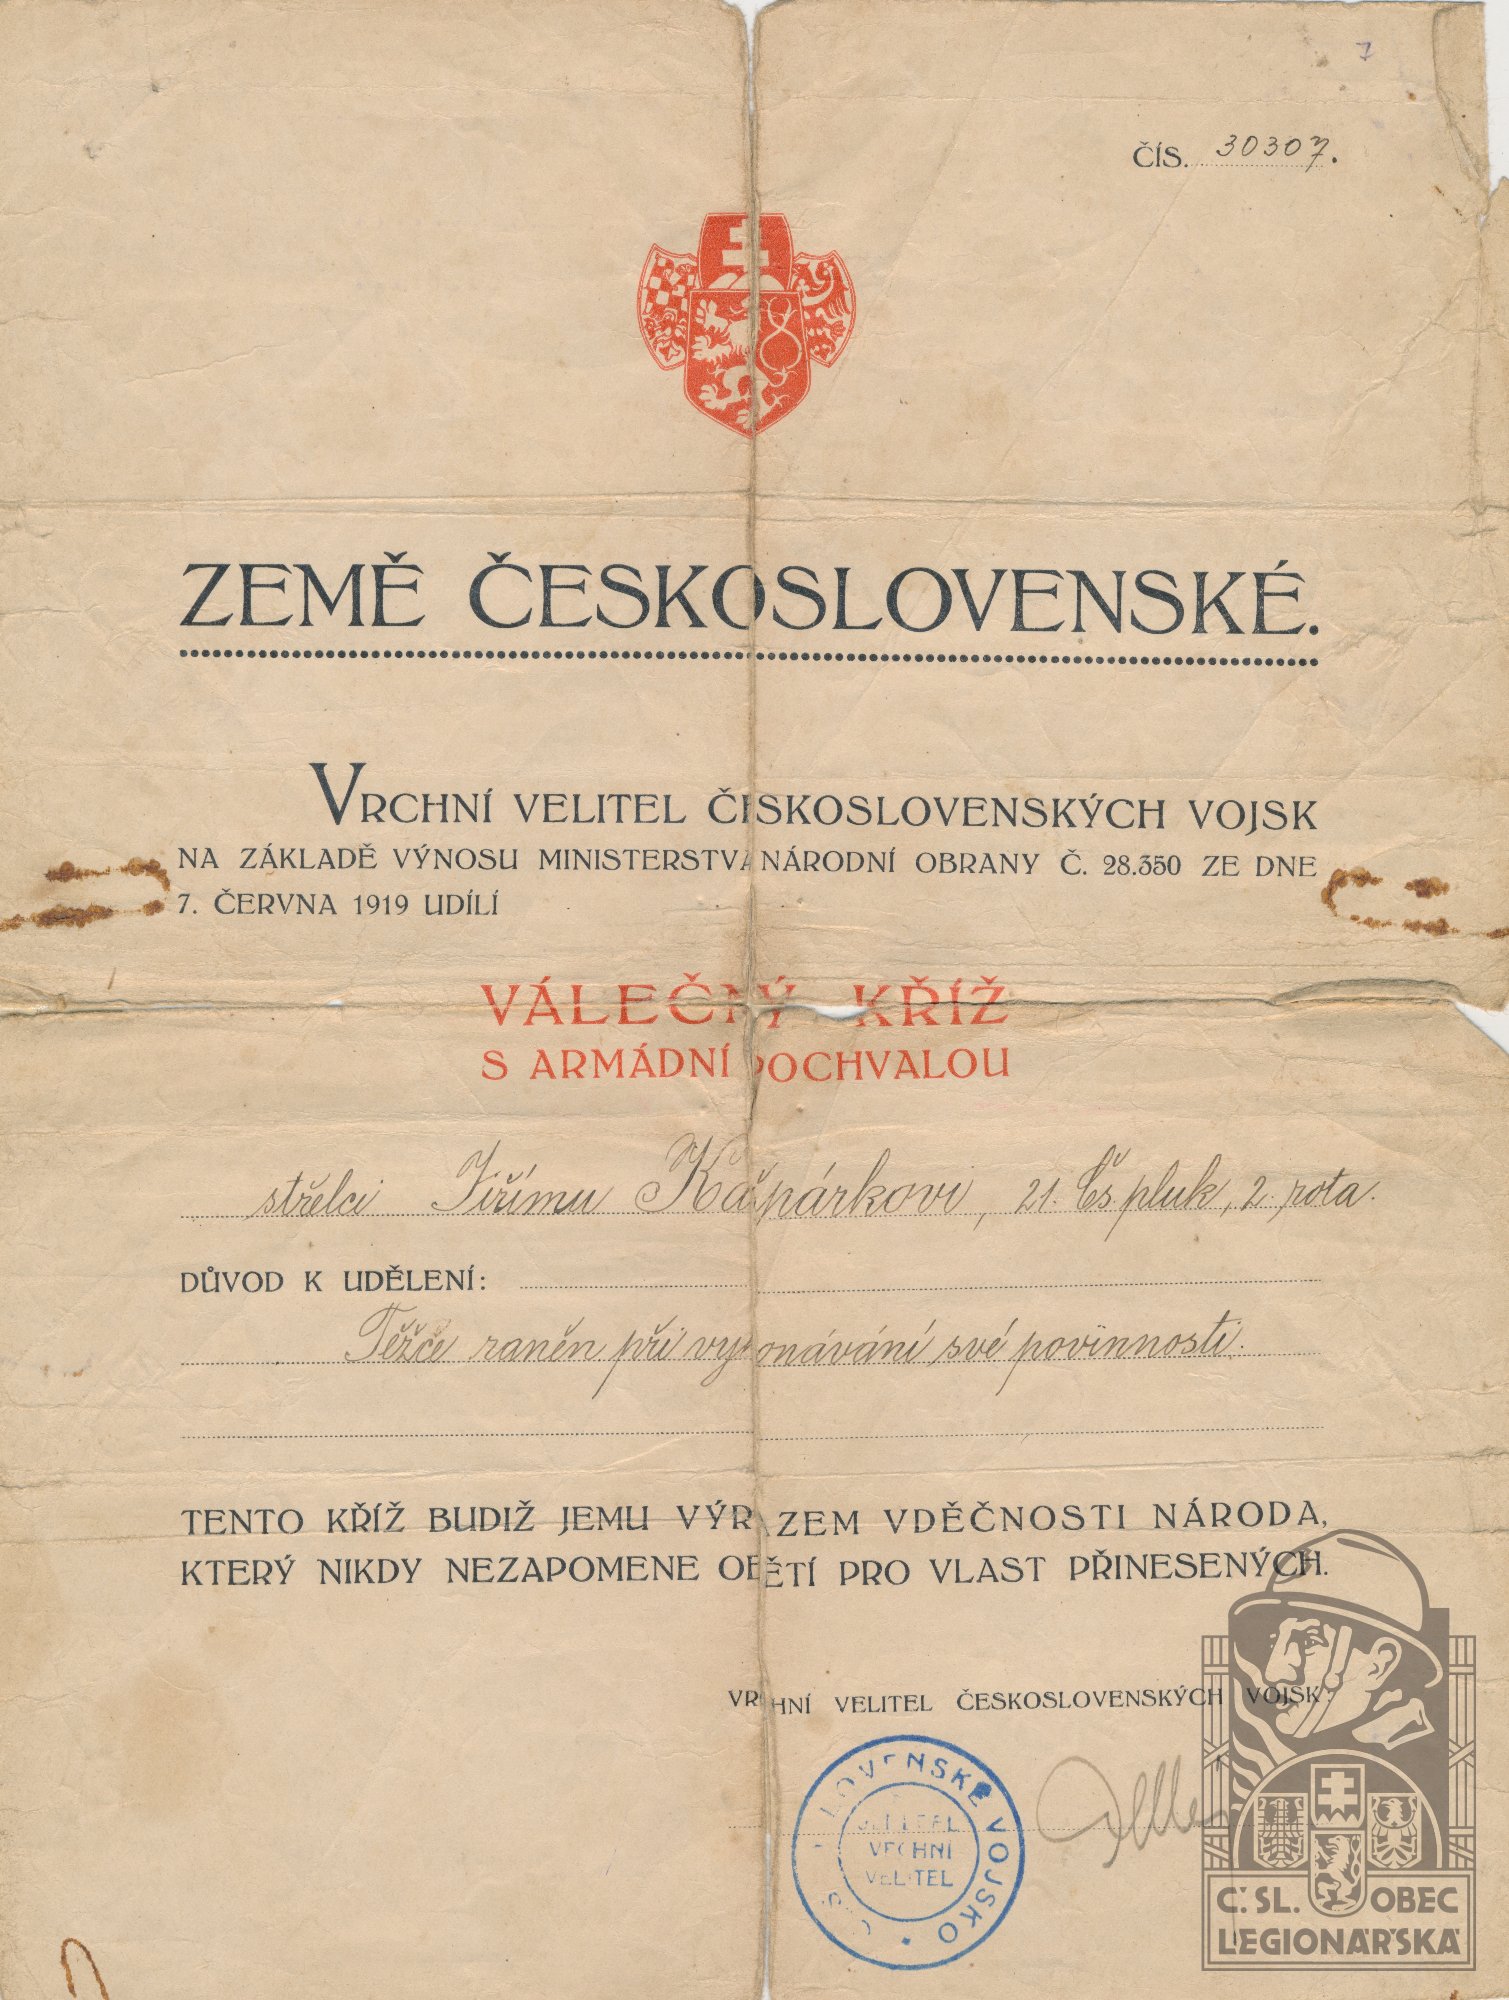 7
ČÍS. 30307.
ZEMĚ ČESKOSLOVENSKÉ.
VRCHNÍ VELITEL ČESKOSLOVENSKÝCH VOJSK
NA ZÁKLADĚ VÝNOSU MINISTERSTVA NÁRODNÍ OBRANY Č. 28.350 ZE DNE
7. ČERVNA 1919 UDÍLÍ
VÁLEČNÝ KŘÍŽ
S ARMÁDNÍ POCHVALOU
střelci Jiřímu Kašpárkovi, 21. Čs pluk, 2. rota.
DŮVOD K UDĚLENÍ:
Těžče raněn při vykonávání své povinnosti.
TENTO KŘÍŽ BUDIŽ JEMU VÝRAZEM VDĚČNOSTI NÁRODA,
KTERÝ NIKDY NEZAPOMENE OBĚTÍ PRO VLAST PŘINESENÝCH.
VRCHNÍ VELITEL ČESKOSLOVENSKÝCH VOJSK:
SLOVENSKÉ VOJSKO
VRCHNÍ
VELITEL
Č. SL. OBEC
LEGIONÁŘSKÁ